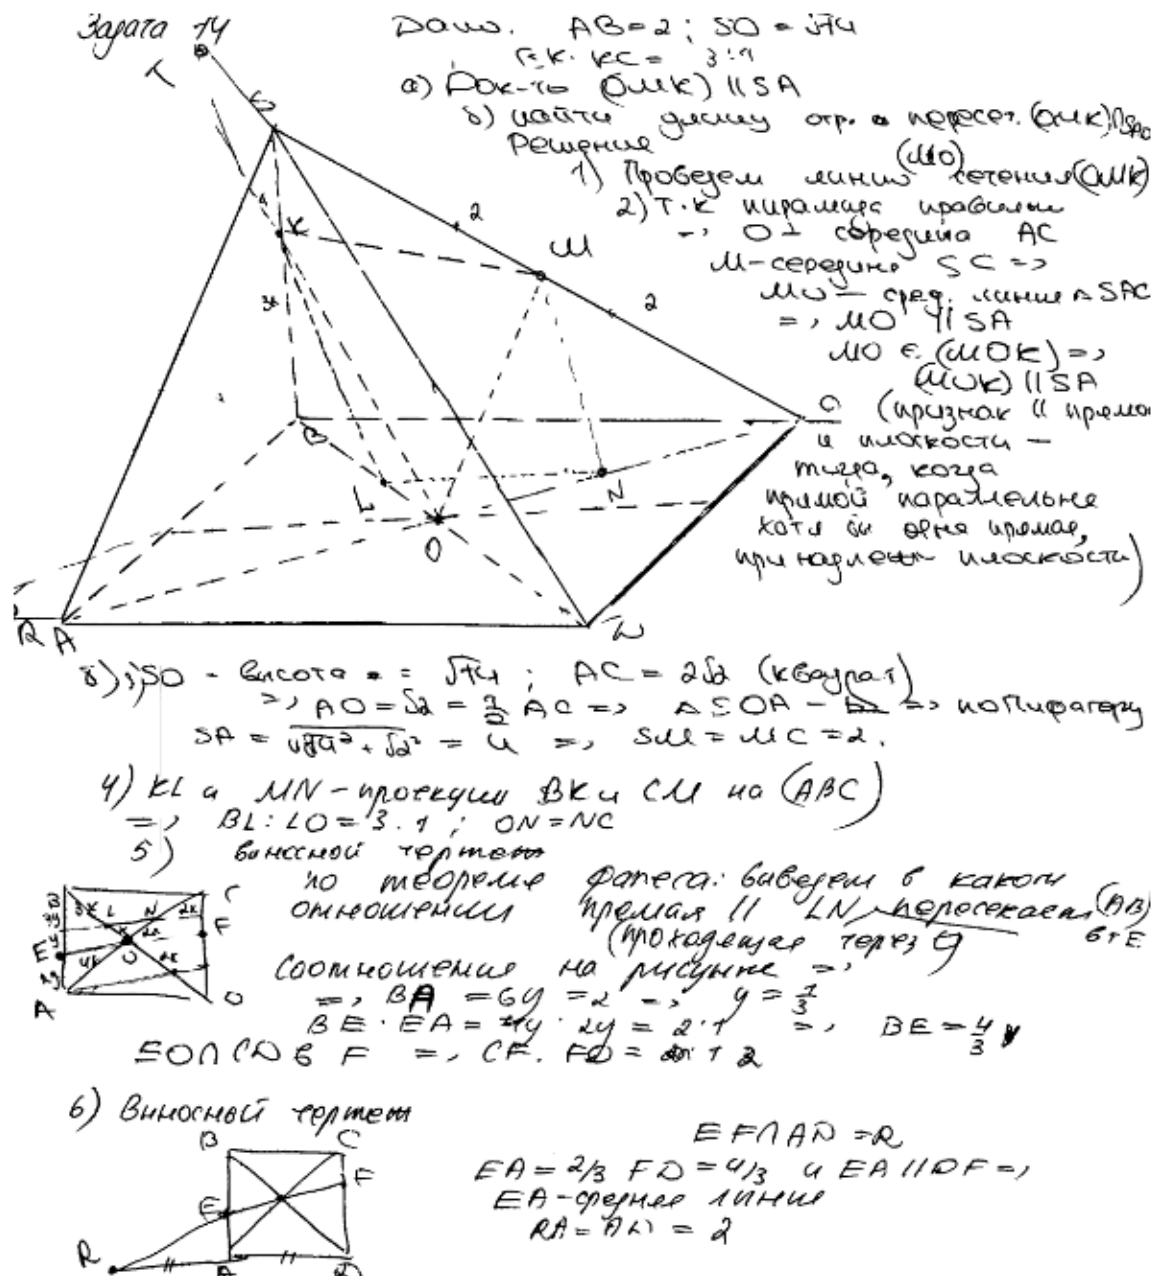 Задача 14
Дано. AB=2; SO = √14
BK:KC = 3:1
а) Док-ть (OMK) || SA
б) найти длину отр. пересеч. (OMK)∩SAD
Решение
(MO)
1) Проведем линию сечения (OMK)
2) Т.к пирамида правильн
=> O - середина AC
M-середина SC =>
MO – сред. линия △SAC
=> MO || SA
MO ∈ (MOK) =>
(MOK) || SA
(признак || прямой
и плоскости –
тогда, когда
прямой параллельна
хотя бы одна прямая,
принадлеж плоскости)
T
S
K
2
M
3x
2
C
B
L
N
O
R A
D
б) 3) SO - высота = √14 ; AC = 2√2 (квадрат)
=> AO = √2 = 1/2 AC => △SOA – => по Пифагору
SA = √(√14² + √2²) = 4 => SM = MC = 2.
4) KL и MN – проекции BK и CM на (ABC)
=> BL : LO = 3:1 ; ON = NC
5) выносной чертеж
по теореме фалеса: выведем в каком
отношении прямая || LN пересекает (AB)
(проходящая через O) в т E
Соотношение на рисунке =>
=> BA = 6y = 2 => y = 1/3
BE : EA = 4y : 2y = 2:1 => BE = 4/3
EO∩CD в F => CF : FD = 1 2
B C
3x L N 2x
F
E
O
4x 2x
2y
A D
6) Выносный чертеж
EF∩AD = R
EA = 2/3 FD = 4/3 и EA || DF =>
EA - средняя линия
RA = AD = 2
B C
F
E
R
A D